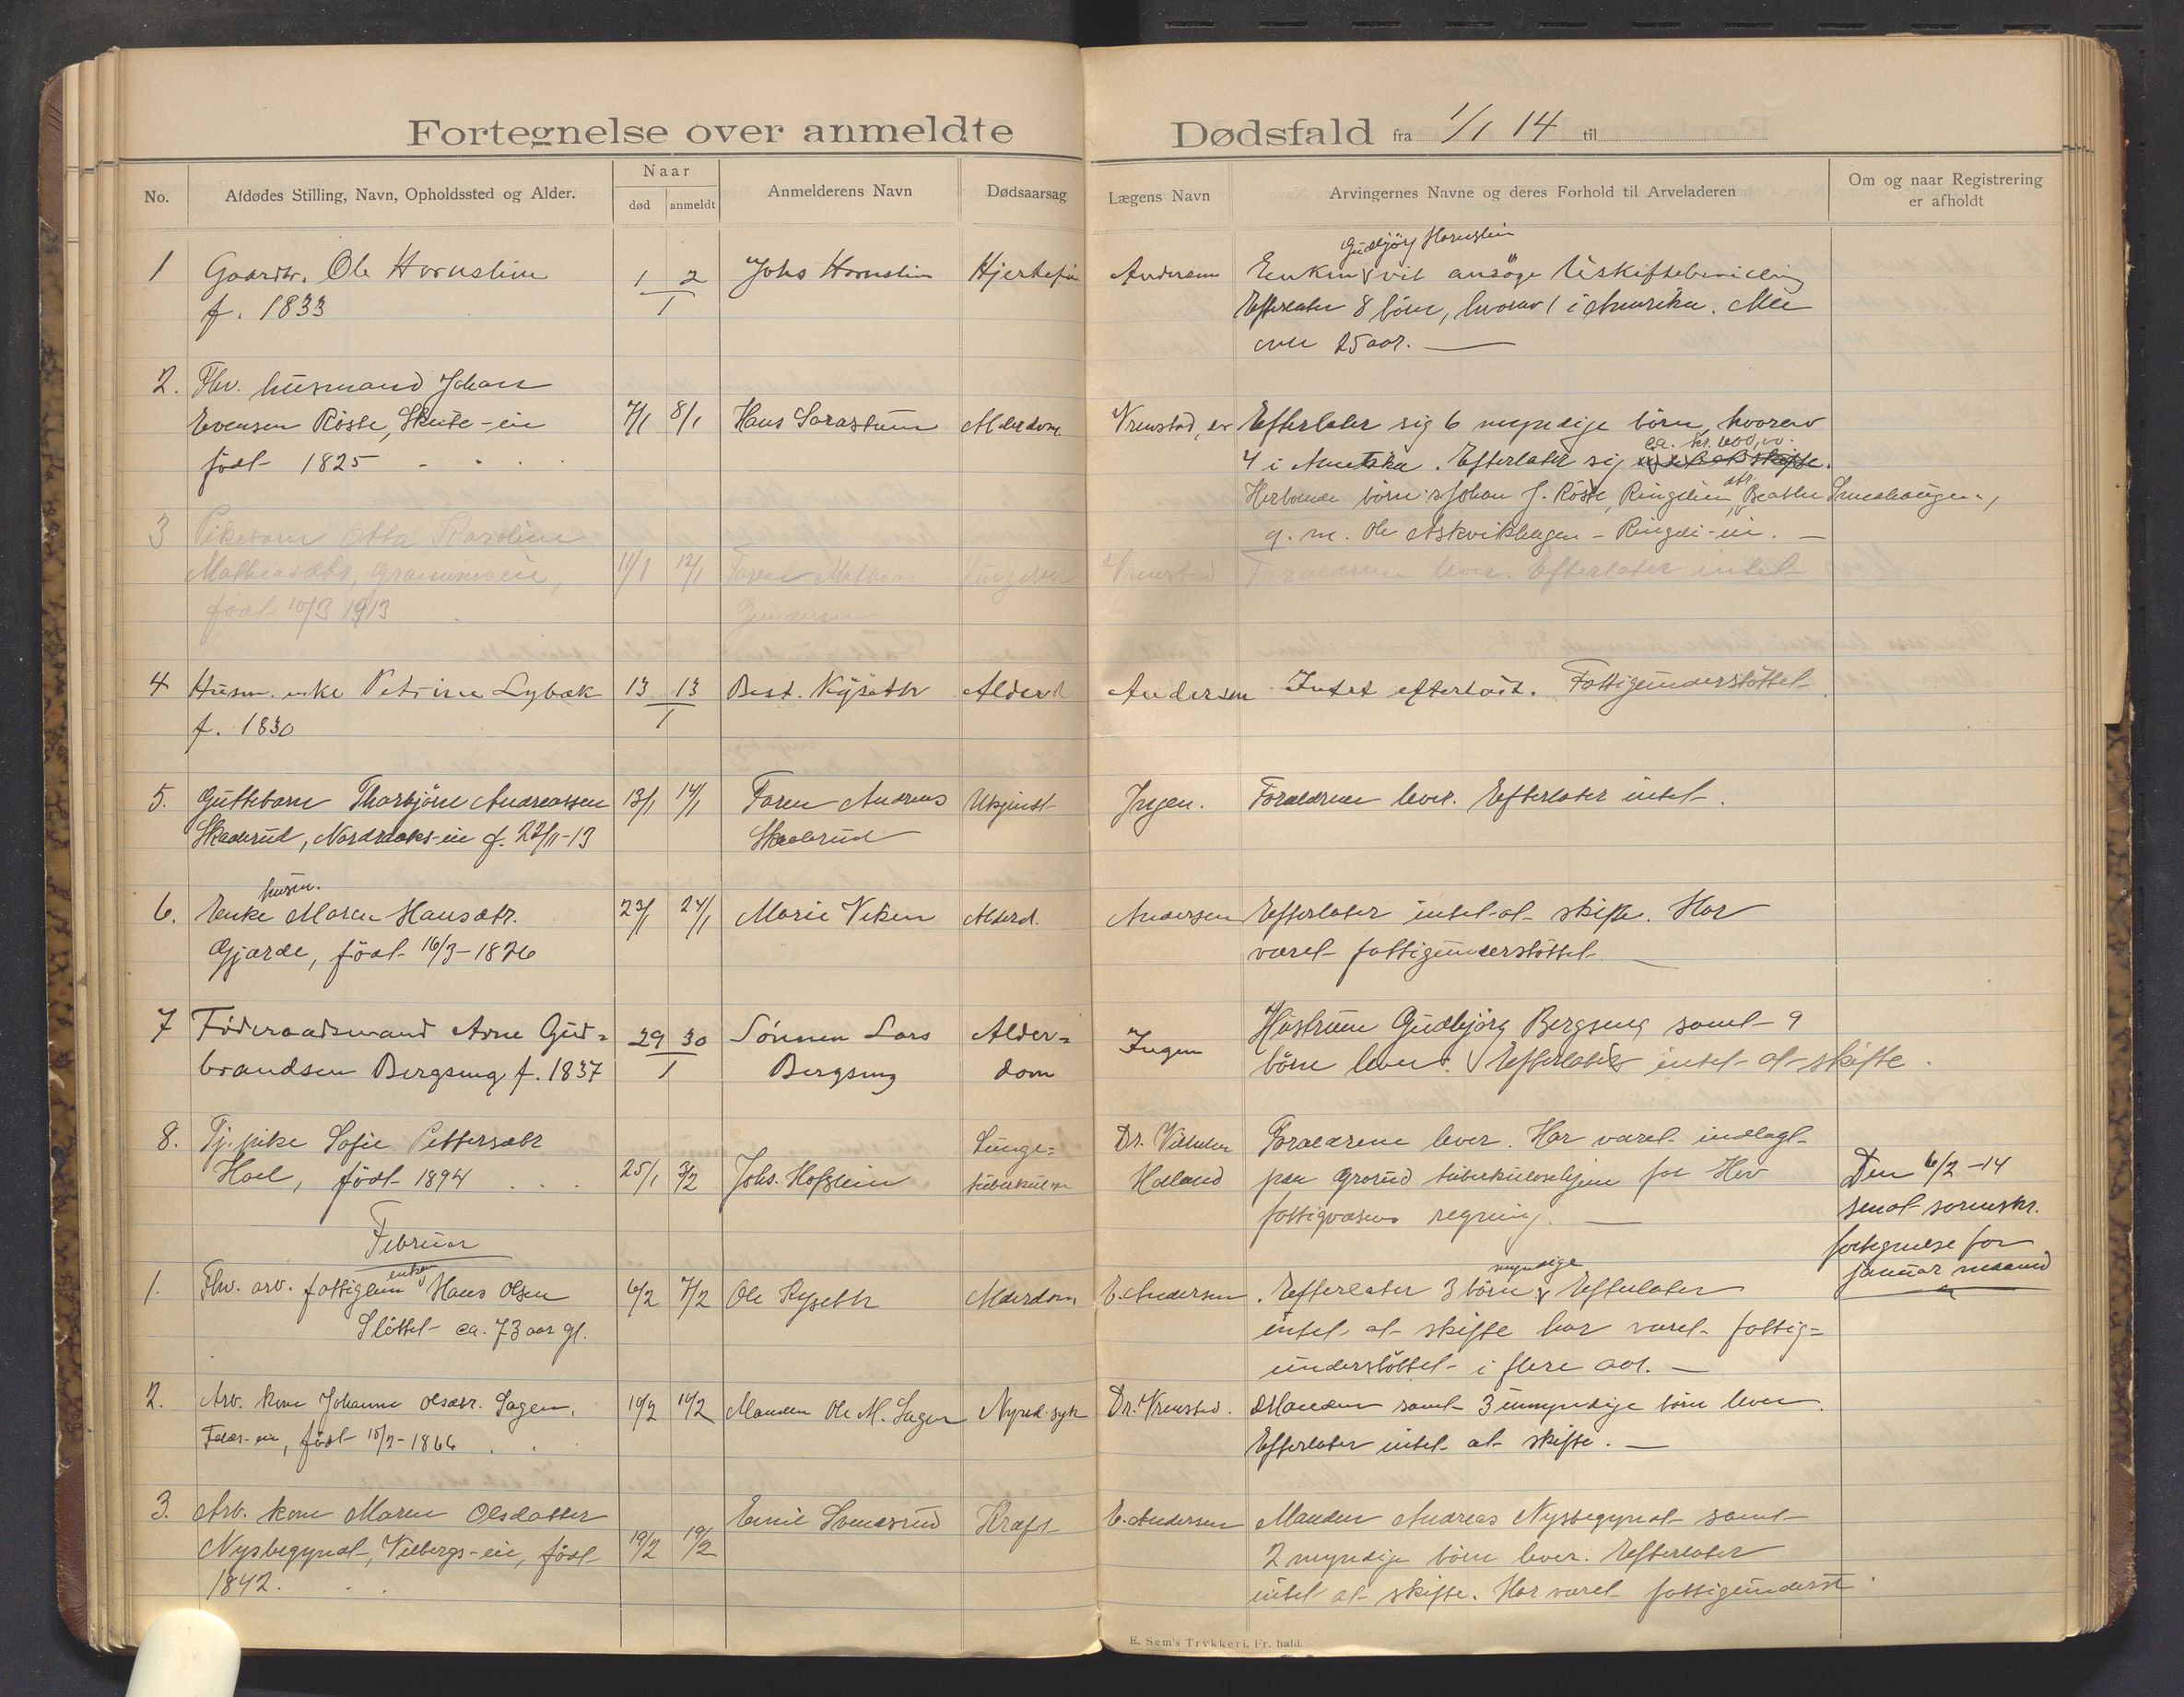 Fortegnelse over anmeldte Dødsfald fra 1/1 14 til
No.
Afdødes Stilling, Navn, Opholdssted og Alder.
Naar
død
anmeldt
Anmelderens Navn
Dødsaarsag
Lægens Navn
Arvingernes Navne og deres Forhold til Arveladeren
Om og naar Registrering
er afholdt
1
Gaardbr. Ole Hornslien
f. 1833
1 2
1
Johs Hornslien
Andersen
Gudbjørg Hornslien
Enken vil ansøge Uskiftebevilling
Efterlater 8 börn, hvorav 1 i Amerika. Alle
over 25 aar.
2.
Fhv. husmand Johan
Evensen Röste, Skute-eie
födt 1825
7/1
8/1
Hans Sarastuen
Alderdom
Vrenstad
Efterlater sig 6 myndige börn, hvorav
ca. kr. 600,00.
4 i Amerika. Efterlater sig
Herboende börn: Johan J. Röste, Ringelien, Beathe
g. m. Ole Askvikhagen - Ringeli-eie.
3
Pikebarn Otta Karoline
Mathiasdtr,
födt 10/3 1913
11/1
12/1
Faren Mathias
Gundersen
Vrenstad
Foraeldrene lever. Efterlater intet
4
Husm. enke Petrine Lybæk
f. 1830
13 13
1
Best. Kyseth
Alderd
Andersen
Intet efterladt. Fattigunderstöttet
5.
Guttebarn Thorbjörn Andreassen
f. 22/11-13
13/1
14/1
Faren Andreas
Skaderud
Ingen.
Foraeldrene lever. Efterlater intet.
6.
husm.
Enke Maren Hansdtr.
Gjærde, födt 16/3-1826
23/1
24/1
Marie Viken
Alderd.
Andersen
Efterlater intet at skifte. Har
været fattigunderstöttet
7
Føderaadsmand Arne Gud=
brandsen Bergseng f. 1837
29 30
1
Sönnen Lars
Bergseng
Alder=
dom
Ingen
Hustruen Gudbjörg Bergseng samt 9
börn lever. Efterlater intet at skifte.
8.
Tj. pike Sofie Pettersdtr
Hoel, födt 1894
25/1
3/2
Johs. Hofslien
Lunge=
tuberkulose
Dr. Vilhelm
Haland
Foraeldrene lever. Har været indlagt
paa Grorud tuberkulosehjem for
fattigvæsens regning.
Den 6/2-14
sendt sorenskr.
fortegnelse for
januar maaned
Februar
1.
Fhv. arb. fattiglem enkem. Hans Olsen
Slöttet ca. 73 aar gl.
6/2
7/2
Ole Kyseth
Alderdom
E. Andersen
myndige
Efterlater 3 börn Efterlater
intet at skifte har været fattig=
understöttet i flere aar.
2.
Arb. kone Johanne Olsdtr. Hagen,
1866
Manden Ole M. Hagen
Dr. Vrenstad.
Manden samt 3 umyndige börn lever.
Efterlater intet at skifte.
3.
Arb. kone Maren Olsdatter
Nysbegyndt, Vilbergs-eie, födt
1842.
19/2
19/2
Emil Svendsrud
Kræft
E. Andersen
Manden Andreas Nysbegyndt samt
2 myndige börn lever. Efterlater
intet at skifte. Har været fattigunderst
E. Sem's Trykkeri, Fr. hald.